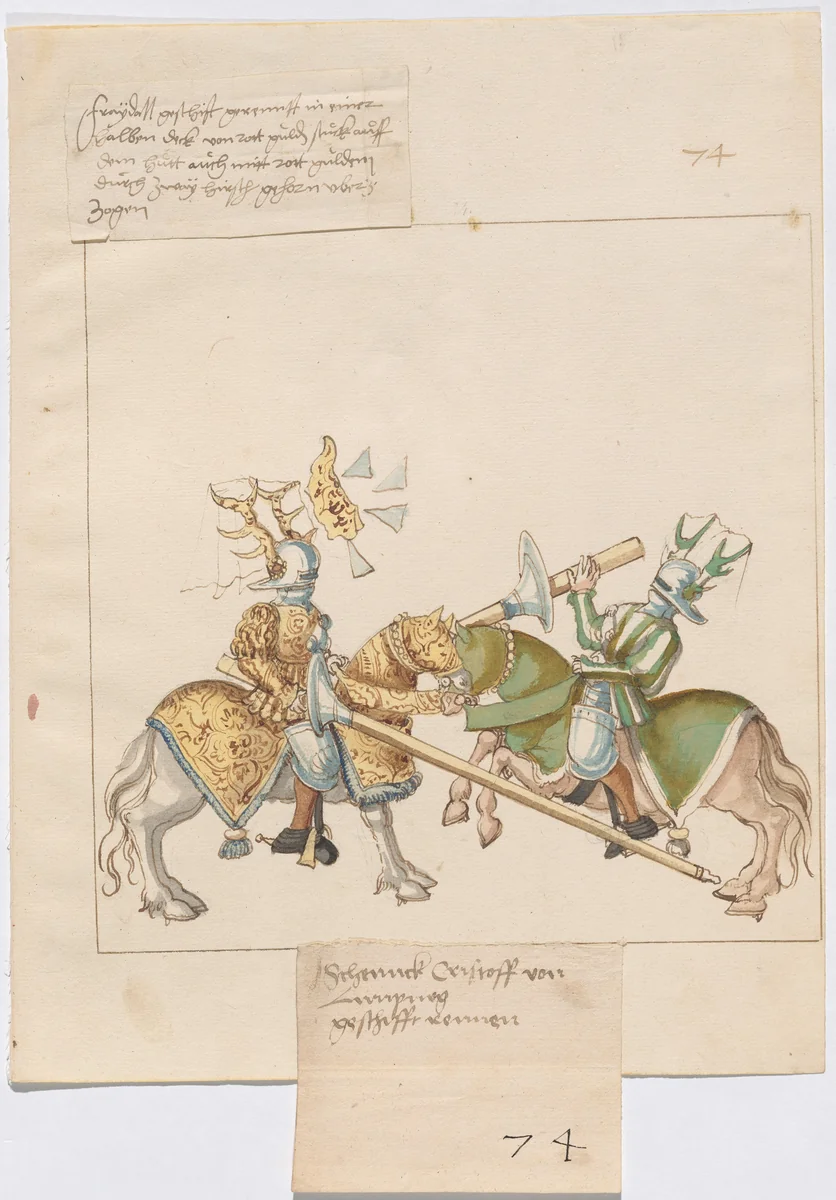 fraÿdall geschift gerenntt in einer
halben deck von rott guld stuck auff
dem hütt auch mitt rott gulden
durch zwaÿ hirsch gehorn uber
zogen
74
Schennck Cristoff von
Limpurg
geschifft rennen
74